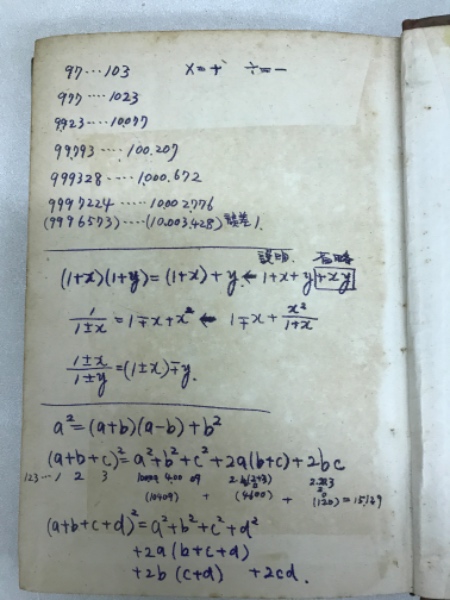 97...103 ×=+ ÷=-
977....1023
9923....10,077
99,793....100,207
999328.....1,000,672
9997224......10002,776
(9996573)....(10,003,428) 誤差1.
說明. 省略
(1+x)(1+y)=(1+x)+y.←1+x+y+xy
1/1±x=1∓x+x²← 1∓x+x²/1+x
1±x/1±y=(1±x)∓y.
a²=(a+b)(a-b)+b²
(a+b+c)²=a²+b²+c²+2a(b+c)+2bc
123...1 2 3 10000 400 09
(10409) + (4600) + (120)=15,129
(a+b+c+d)²=a²+b²+c²+d²
+2a(b+c+d)
+2b(c+d) +2cd.